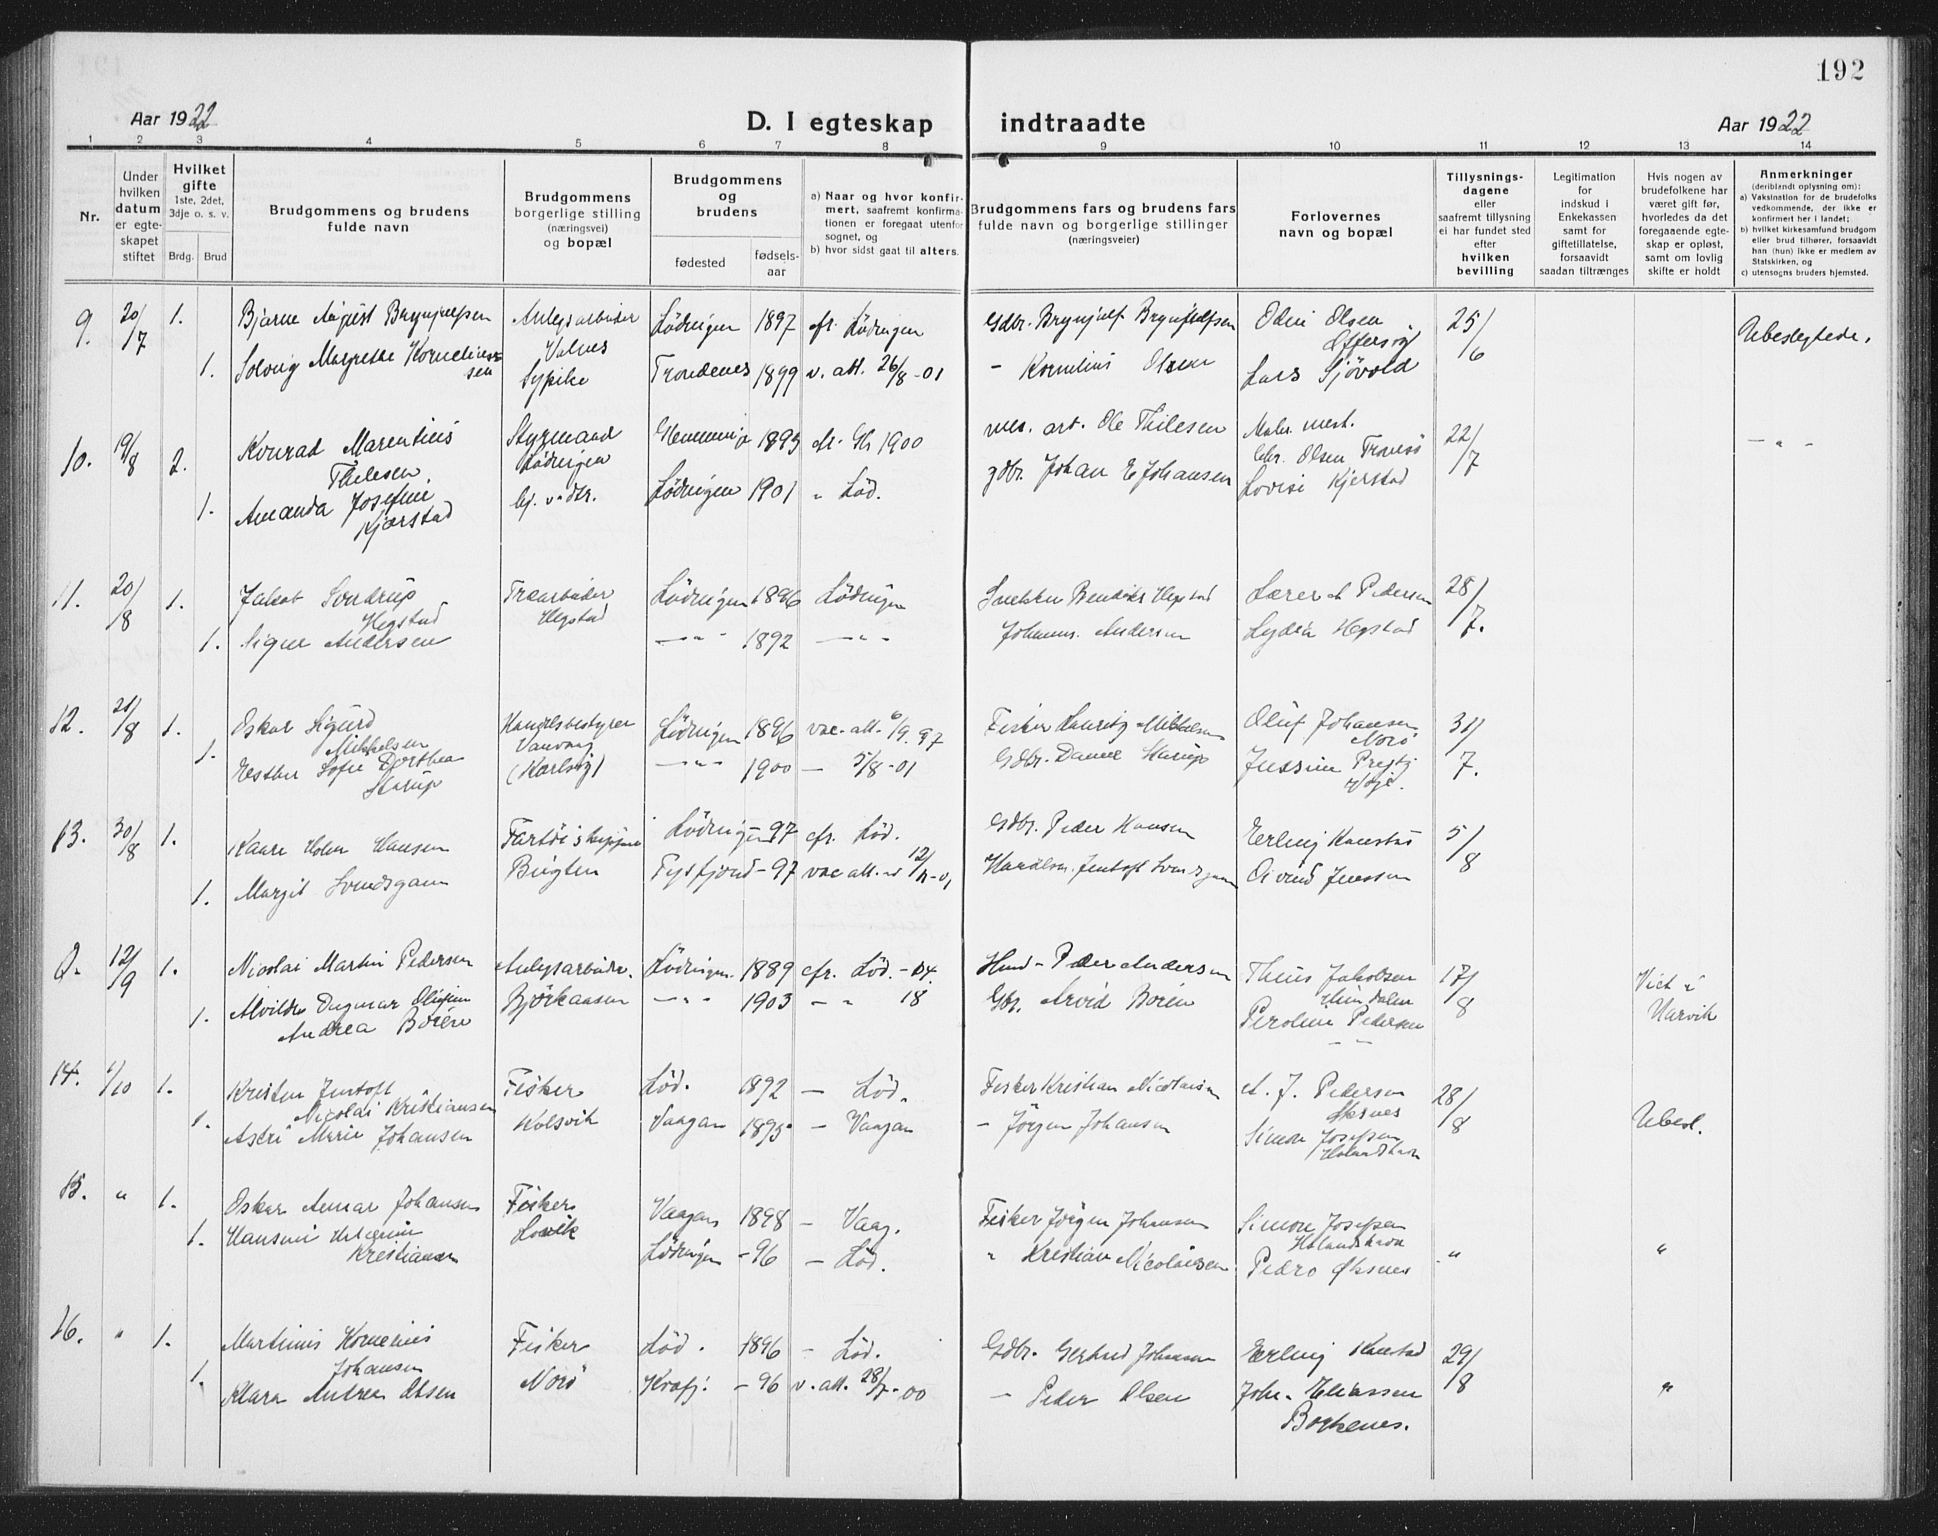 192
Aar 1922
D. I egteskap indtraadte
Aar 1922
1 2 3 4 5 6 7 8 9 10 11 12 13 14
Nr.
Under hvilken datum er egteskapet stiftet
Hvilket gifte
1ste, 2det, 3dje o. s. v.
Brdg. Brud
Brudgommens og brudens fulde navn
Brudgommens borgerlige stilling (næringsvei) og bopæl
Brudgommens og brudens
fødested
fødselsaar
a) Naar og hvor konfirmert, saafremt konfirmationen er foregaat utenfor sognet, og
b) hvor sidst gaat til alters.
Brudgommens fars og brudens fars fulde navn og borgerlige stillinger (næringsveier)
Forlovernes navn og bopæl
Tillysningsdagene eller saafremt tillysning ei har fundet sted efter hvilken bevilling
Legitimation for indskud i Enkekassen samt for giftetillatelse, forsaavidt saadan tiltrænges
Hvis nogen av brudefolkene har været gift før, hvorledes da det foregaaende egteskap er opløst, samt om lovlig skifte er holdt
Anmerkninger
(deriblandt oplysning om):
a) Vaksination for de brudefolks vedkommende, der ikke er konfirmert her i landet;
b) hvilket kirkesamfund brudgom eller brud tilhører, forsaavidt han (hun) ikke er medlem av Statskirken, og
c) utensogns bruders hjemsted.
9. 20/7 1. Bjarne August Brynjulfsen Anlegsarbeider Lödingen 1897 cfr. Lödingen Gdbr. Brynjulf Brynjulfsen Odin Olsen 25/6 Ubeslegtede.
Valnes Offersöy
1. Solveig Margrethe Korneliussen Sypike Trondenes 1899 v. att. 26/8-01 - Kornelius Olsen Lars Sjövold
10. 19/8 2. Konrad Marentius Styrmand 1893 1900 art. Ole Thilesen Maler mest. 22/7 - " -
Thilesen Lödingen Olsen Tromsö
1. Amanda Josefine v. dtr. Lödingen 1901 " Löd. gdbr. Johan E Johansen Lovise Kjerstad
Kjærstad
11. 20/8 1. Jakob Sontrup Træarbeider Lödingen 1896 Lödingen Snekker Bendik Hegstad Lærer A Pedersen 28/7.
Hegstad Hegstad
1. Signe Andersen - " - 1892 - " - Johannes Andersen Lydia Hegstad
12. 21/8 1. Oskar Sigurd Handelsbestyrer Lödingen 1896 vac. att. 6/9.97 Fisker Lauritz Mikkelsen Oluf Johansen 31/7.
Mikkelsen Vanvaag Norö
1. Esther Sofie Dorthea (Karlsöy) - " - 1900 - 5/8-01 Gdbr. Daniel Starup
Starup
13. 30/8 1. Kaare Holm Hansen Fartöiskipper Lödingen -97 cfr. Löd. Gdbr. Peder Hansen Erling Kanstad 5/8
1. Margit Svendsgam Tysfjord -97 vac att. 12/11-01 Jentoft Svendsgam Eivind Jenssen
0. 12/9 1. Nicolai Martin Pedersen Anlegsarbeider. Lödingen. 1889 cfr. Löd. -04. Hmd - Peder Andersen Thius Jakobsen 17/8 Viet i
1. Alvilde Dagmar Björkaasen - " - 1903 - " 18 Gbr. Arvid Boien Peroline Pedersen Narvik
Andrea Boien - " -
14. 1/10 1. Kristen Jentoft Fisker Löd. 1892 - Löd. Fisker Kristian Nicolaisen A. J. Pedersen 28/8 Ubesl.
Nicolai Kristiansen Øksnes
1. Astri Marie Johansen Kolsvik Vaagan 1895 - Vaagan - Jörgen Johansen Simon Josefsen
Holandshavn
15. " 1. Oskar Anmar Johansen Fisker Vaagan 1898 - Vaag. Fisker Jörgen Johansen Simon Josefsen
Holandshavn
1. Lödingen -96 - Löd. " Kristian Nicolaisen Pedro Øksnes " "
Kristiansen
16. " 1. Martinus Kornelius Fisker Löd. 1896 - Löd. Gdbr. Gerhard Johansen Erling Kanstad 29/8
Johansen
1. Klara Andrea Olsen Norö Kvæfj. -96 v. att. 28/7-00 - Peder Olsen Joh. Eliassen "
Borkenes.